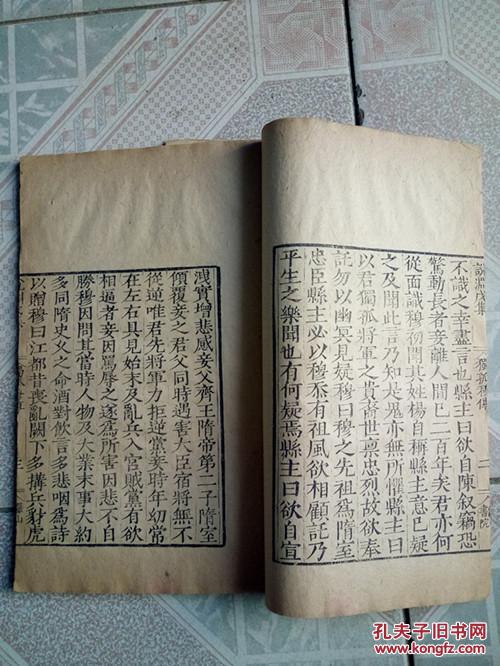 不識之幸盡言也縣主曰欲自陳叙竊恐
驚動長者妾離人間已二百年矣君亦何
從面識穆初聞其姓楊自稱縣主意已疑
之及聞此言乃知是鬼亦無所懼縣主曰
以君獨孤將軍之貴裔世禀忠烈故欲奉
託勿以幽冥見疑穆曰穆之先祖為隋室
忠臣縣主必以穆忝有祖風欲相顧託乃
平生之樂聞也有何疑焉縣主曰欲自宣
洩實增悲感妾父齊王隋帝第二子隋室
傾覆妾之君父同時遇害大臣宿將無不
從逆唯君先將軍力拒逆黨妾時年幼常
在左右具見始末及亂兵入宮賊黨有欲
相逼者妾因罵辱之遂為所害因悲不自
勝穆因問其當時人物及大業末事大約
多同隋史乂之命酒對飲言多悲咽為詩
以贈穆曰江都昔喪亂闕下多搆兵豺虎
孔夫子旧书网
www.kongfz.com